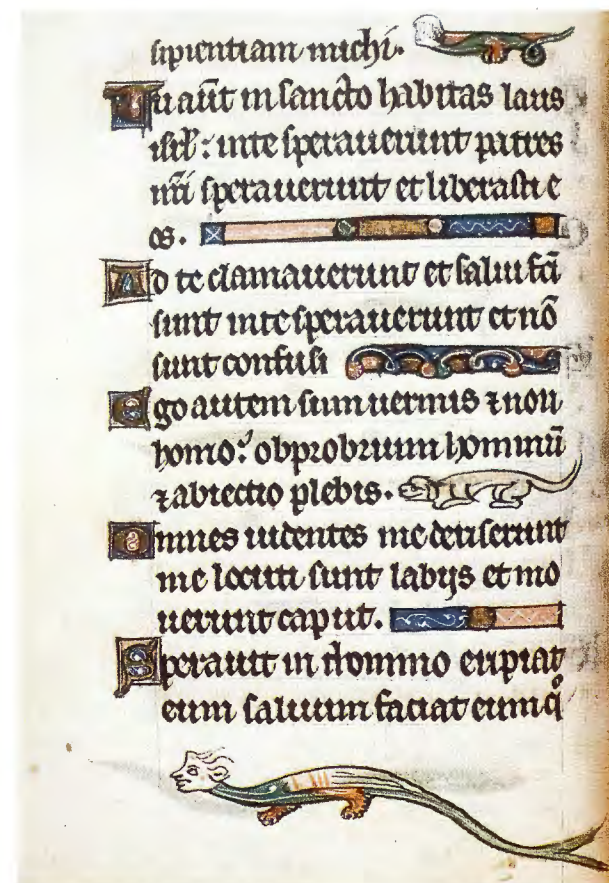 sipientiam michi.
Tu aūt in sancto habitas laus
isrl̄: inte sperauerunt patres
nr̄i sperauerunt et liberasti e
os.
Ad te clamauerunt et salui fc̄i
sunt inte sperauerunt et nō
sunt confusi
Ego autem sum uermis ⁊ non
homo: obprobrium hominū
⁊ abiectio plebis.
Omnes uidentes me deriserunt
me locuti sunt labijs et mo
uerunt caput.
Sperauit in domino eripiat
eum saluum faciat eum qͦ